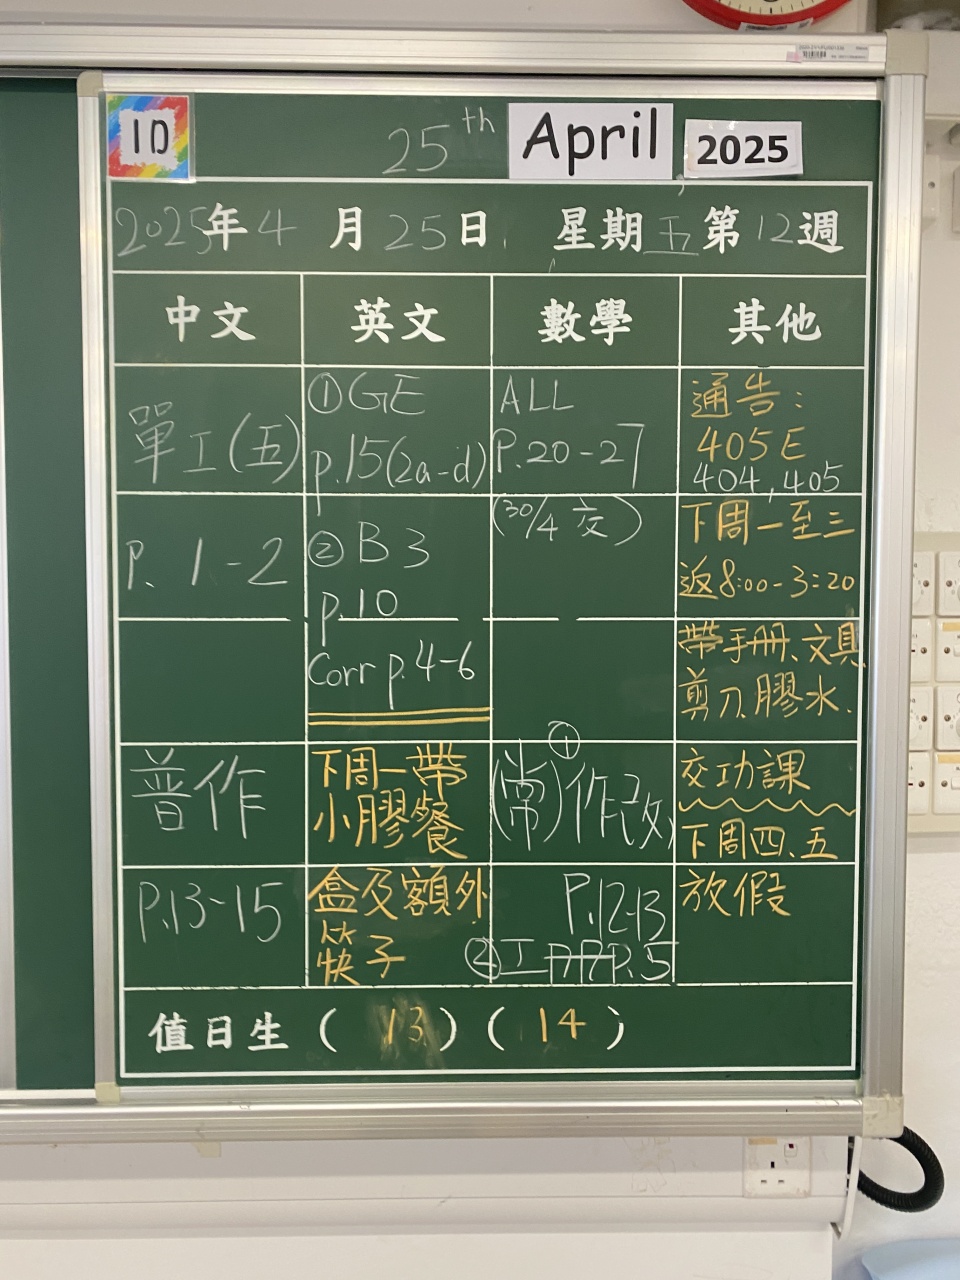 1D
25th April 2025
2025年4月25日 星期五第12週
中文 英文 數學 其他
單工(五)
P. 1-2
普作
P.13-15
①GE
p.15(2a-d)
②B3
p.10
Corr p.4-6
下周一帶
小膠餐
盒及額外
筷子
ALL
P.20-27
(30/4 交)
①
(常)作改
P.12-13
②工
P.5
通告:
405E
404,405
下周一至三
返8:00-3:20
帶手冊、文具
剪刀膠水.
交功課
下周四、五
放假
值日生( 13 )( 14 )